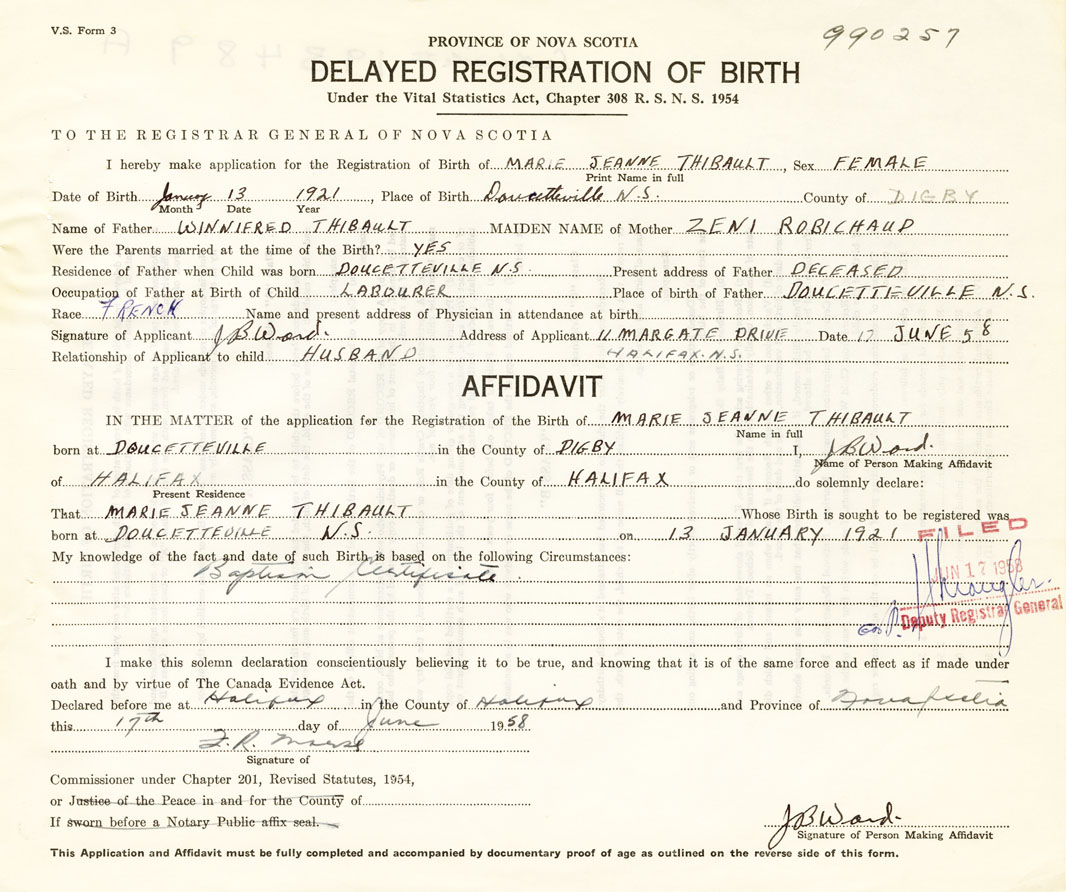 V.S. Form 3
990257
PROVINCE OF NOVA SCOTIA
DELAYED REGISTRATION OF BIRTH
Under the Vital Statistics Act, Chapter 308 R. S. N. S. 1954
TO THE REGISTRAR GENERAL OF NOVA SCOTIA
I hereby make application for the Registration of Birth of MARIE JEANNE THIBAULT, Sex FEMALE
Print Name in full
Date of Birth January 13 1921, Place of Birth Doucetteville N.S. County of DIGBY
Month Date Year
Name of Father WINNIFRED THIBAULT MAIDEN NAME of Mother ZENI ROBICHAUD
Were the Parents married at the time of the Birth? YES
Residence of Father when Child was born DOUCETTEVILLE N.S. Present address of Father DECEASED
Occupation of Father at Birth of Child LABOURER Place of birth of Father DOUCETTEVILLE N.S.
Race FRENCH Name and present address of Physician in attendance at birth
Signature of Applicant JBWard. Address of Applicant 11 MARGATE DRIVE Date 17 JUNE 58
Relationship of Applicant to child HUSBAND HALIFAX. N.S.
AFFIDAVIT
IN THE MATTER of the application for the Registration of the Birth of MARIE JEANNE THIBAULT
Name in full
born at DOUCETTEVILLE in the County of DIGBY I, JBWard.
Name of Person Making Affidavit
of HALIFAX in the County of HALIFAX do solemnly declare:
Present Residence
That MARIE JEANNE THIBAULT Whose Birth is sought to be registered was
born at DOUCETTEVILLE N.S. on 13 JANUARY 1921
FILED
My knowledge of the fact and date of such Birth is based on the following Circumstances:
Baptism Certificate.
JUN 17 1958
Deputy Registrar General
I make this solemn declaration conscientiously believing it to be true, and knowing that it is of the same force and effect as if made under
oath and by virtue of The Canada Evidence Act.
Declared before me at Halifax in the County of Halifax and Province of Nova Scotia
this 17th day of June 1958
F. R. Morse
Signature of
Commissioner under Chapter 201, Revised Statutes, 1954,
or Justice of the Peace in and for the County of
If sworn before a Notary Public affix seal.
JBWard.
Signature of Person Making Affidavit
This Application and Affidavit must be fully completed and accompanied by documentary proof of age as outlined on the reverse side of this form.